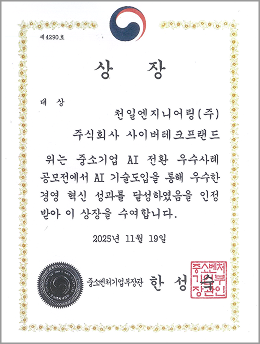 제4290호
상 장
대 상
천일엔지니어링(주)
주식회사 사이버테크프랜드
위는 중소기업 AI 전환 우수사례
공모전에서 AI 기술도입을 통해 우수한
경영 혁신 성과를 달성하였음을 인정
받아 이 상장을 수여합니다.
2025년 11월 19일
중소벤처기업부장관 한 성 숙
중소벤처
기업부
장관인